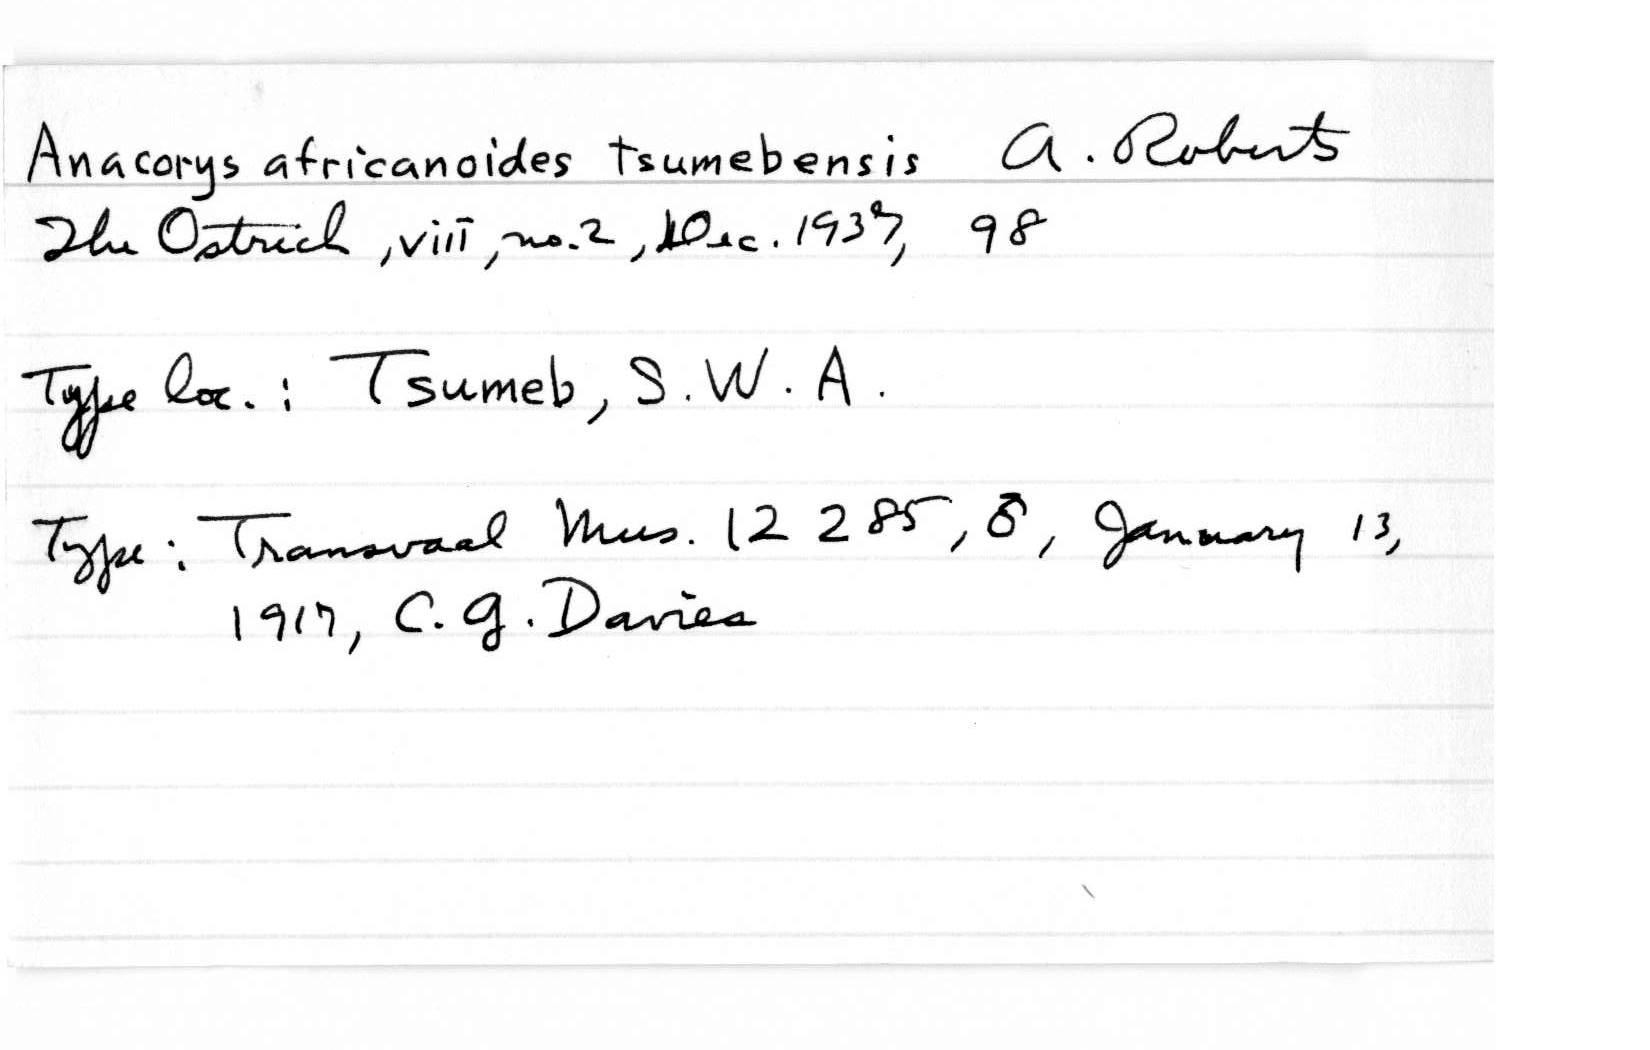 Anacorys africanoides tsumebensis A. Roberts
The Ostrich, viii, no. 2, Dec. 1937, 98
Type loc.: Tsumeb, S.W.A.
Type: Transvaal Mus. 12285, ♂, January 13,
1917, C.G. Davies